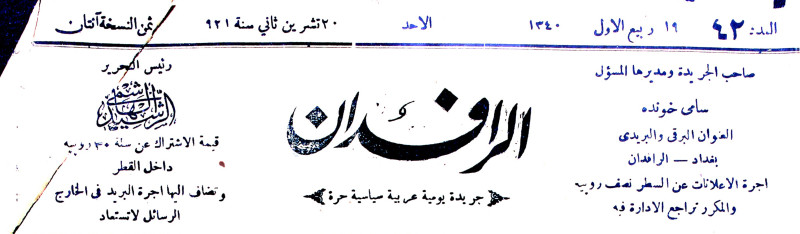 العدد: ٤٢ ١٩ ربيع الاول ١٣٤٠ الاحد ٢٠ تشرين ثاني سنة ٩٢١ ثمن النسخة آنتان
صاحب الجريدة ومديرها المسؤل
سامى خونده
العنوان البرقى والبريدى
بغداد — الرافدان
اجرة الاعلانات عن السطر نصف روبيه
والمكرر تراجع الادارة فيه
الرافدان
جريدة يومية عربية سياسية حرة
رئيس التحرير
قيمة الاشتراك عن سنة ٣٠ روبيه
داخل القطر
وتضاف اليها اجرة البريد فى الخارج
الرسائل لاتستعاد